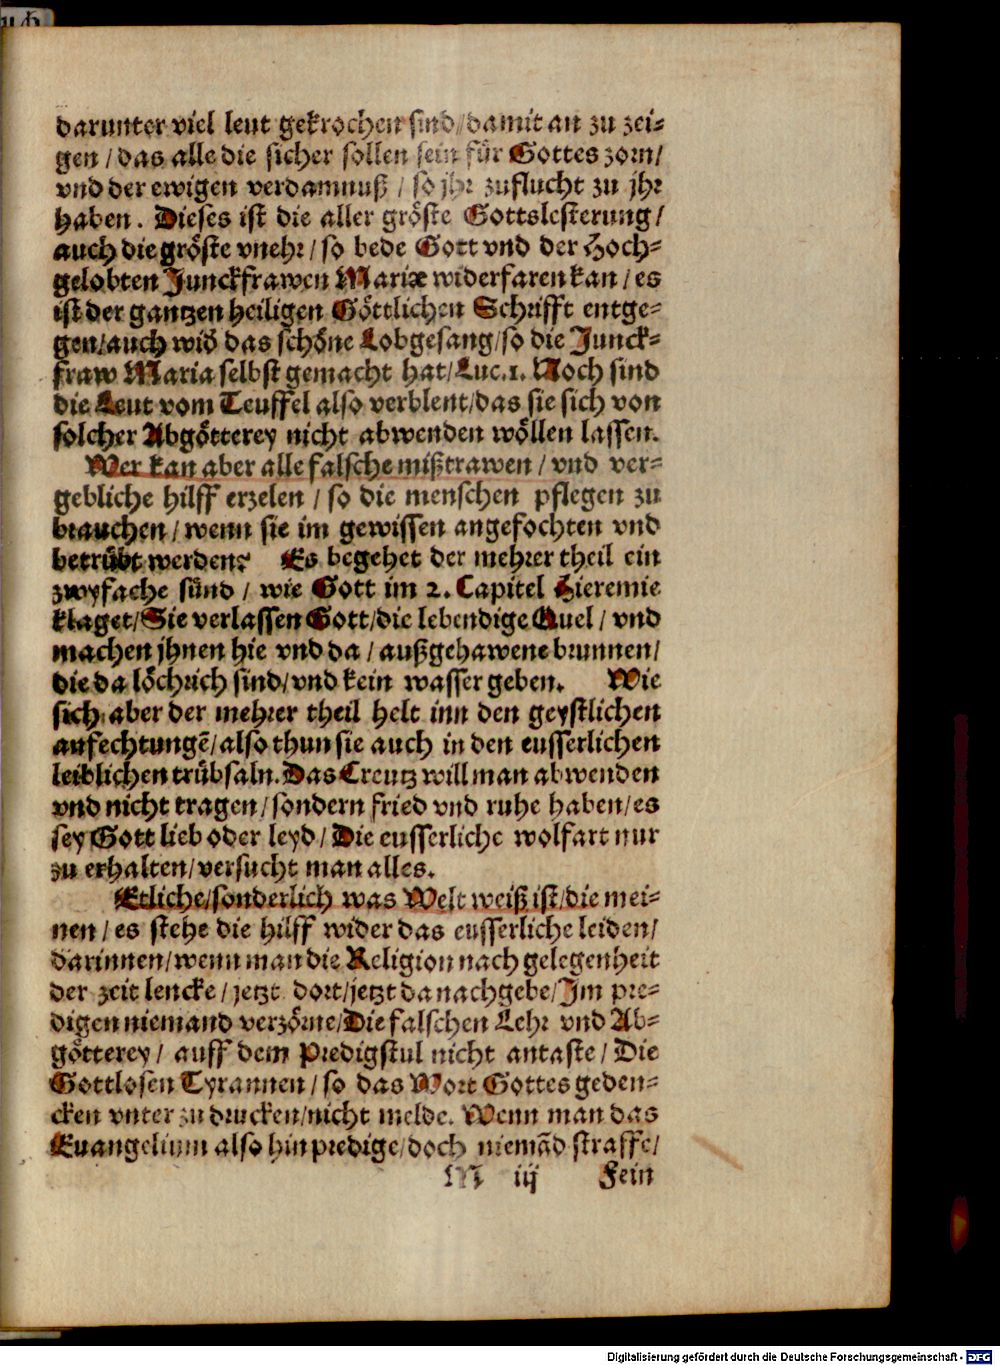 darunter viel leut gekrochen sind/damit an zu zei⸗
gen/das alle die sicher sollen sein für Gottes zorn/
vnd der ewigen verdamnuß/so jhr zuflucht zu jhr
haben. Dieses ist die aller gröste Gottslesterung/
auch die gröste vnehr/so bede Gott vnd der Hoch⸗
gelobten Junckfrawen Mariæ widerfaren kan/es
ist der gantzen heiligen Göttlichen Schrifft entge⸗
gen/auch wid̃ das schöne Lobgesang/so die Junck⸗
fraw Maria selbst gemacht hat/Luc.1. Noch sind
die Leut vom Teuffel also verblent/das sie sich von
solcher Abgötterey nicht abwenden wöllen lassen.
Wer kan aber alle falsche mißtrawen/vnd ver⸗
gebliche hilff erzelen/so die menschen pflegen zu
brauchen/wenn sie im gewissen angefochten vnd
betrübt werden? Es begehet der mehrer theil ein
zwyfache sünd/wie Gott im 2. Capitel Hieremie
klaget/Sie verlassen Gott/die lebendige Quel/vnd
machen jhnen hie vnd da/außgehawene brunnen/
die da löchrich sind/vnd kein wasser geben. Wie
sich aber der mehrer theil helt inn den geystlichen
anfechtungẽ/also thun sie auch in den eusserlichen
leiblichen trübsaln. Das Creutz will man abwenden
vnd nicht tragen/sondern fried vnd ruhe haben/es
sey Gott lieb oder leyd/Die eusserliche wolfart nur
zu erhalten/versucht man alles.
Etliche/sonderlich was Welt weiß ist/die mei⸗
nen/es stehe die hilff wider das eusserliche leiden/
darinnen/wenn man die Religion nach gelegenheit
der zeit lencke/jetzt dort/jetzt da nachgebe/Im pre⸗
digen niemand verzörne/Die falschen Lehr vnd Ab⸗
götterey/auff dem Predigstul nicht antaste/Die
Gottlosen Tyrannen/so das Wort Gottes geden⸗
cken vnter zu drucken/nicht melde. Wenn man das
Euangelium also hin predige/doch niemãd straffe/
M iij Fein
Digitalisierung gefördert durch die Deutsche Forschungsgemeinschaft - DFG